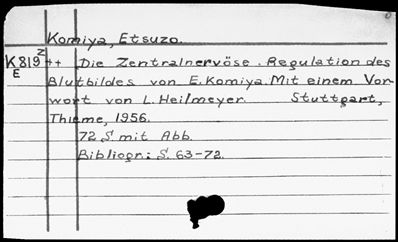 Komiya, Etsuzo.
K819z ++ Die Zentralnervöse. Regulation des
E Blutbildes von E. Komiya. Mit einem Vor-
wort von L. Heilmeyer. Stuttgart,
Thieme, 1956.
72 S. mit Abb.
Bibliogr.: S. 63-72.